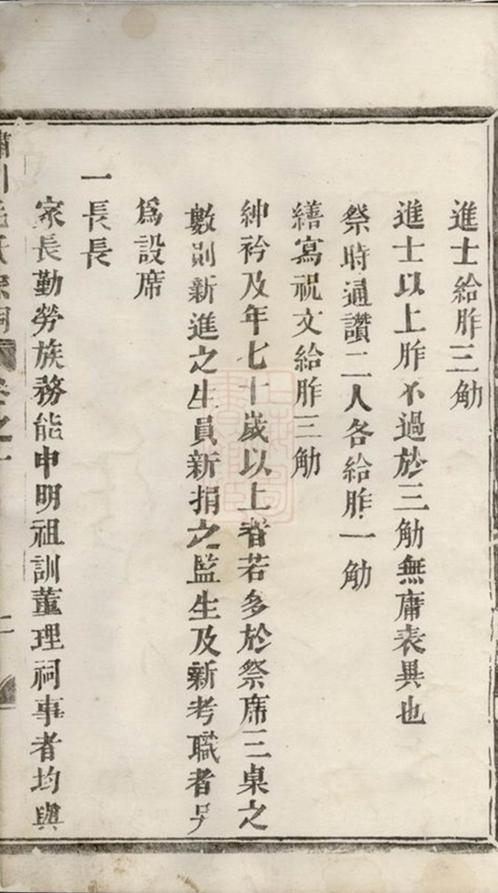 進士給胙三觔
進士以上胙不過於三觔無庸表異也
祭時通讚二人各給胙一觔
繕寫祝文給胙三觔
紳衿及年七十歲以上者若多於祭席三桌之
數則新進之生員新捐之監生及新考職者另
為設席
一長長
家長勤勞族務能申明祖訓董理祠事者均與
氏宗祠 卷之 二